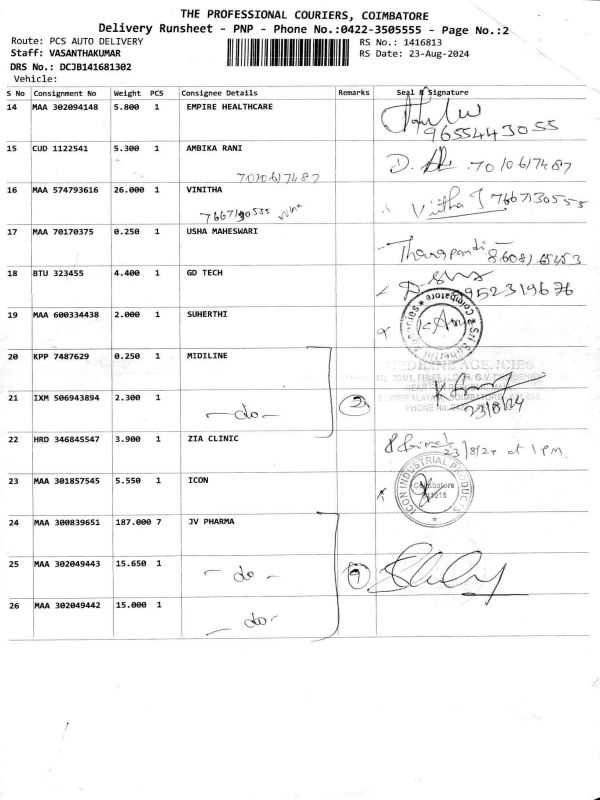 THE PROFESSIONAL COURIERS, COIMBATORE
Delivery Runsheet - PNP - Phone No.:0422-3505555 - Page No.:2
Route: PCS AUTO DELIVERY
RS No.: 1416813
Staff: VASANTHAKUMAR
RS Date: 23-Aug-2024
DRS No.: DCJB141681302
Vehicle:
S No Consignment No Weight PCS Consignee Details Remarks Seal & Signature
14 MAA 302094148 5.800 1 EMPIRE HEALTHCARE
9655443055
15 CUD 1122541 5.300 1 AMBIKA RANI
7010617487 D. 7010617487
16 MAA 574793616 26.000 1 VINITHA
7667130555 Vinitha J 7667130555
17 MAA 70170375 0.250 1 USHA MAHESWARI
Thangapandi
18 BTU 323455 4.400 1 GD TECH
9952319676
19 MAA 600334438 2.000 1 SUHERTHI
Coimbatore
20 KPP 7487629 0.250 1 MIDILINE
MEDICINE AGENCIES
21 IXM 506943894 2.300 1
- do - 2
COIMBATORE
PHONE No:
23/8/24
22 HRD 346845547 3.900 1 ZIA CLINIC
23/8/24 at 1 PM.
23 MAA 301857545 5.550 1 ICON
ICON INDUSTRIAL PRODUCTS
Coimbatore
24 MAA 300839651 187.000 7 JV PHARMA
25 MAA 302049443 15.650 1
- do - 9
26 MAA 302049442 15.000 1
- do -